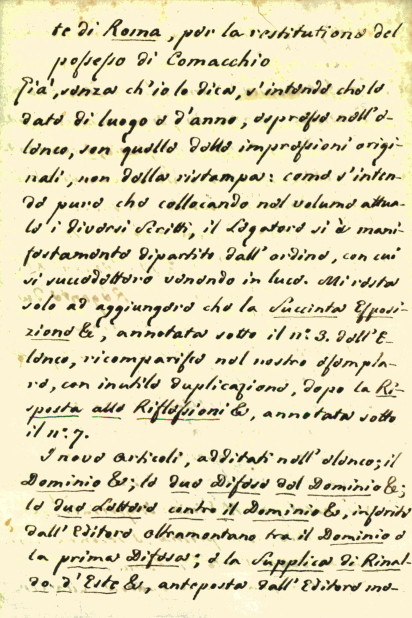 te di Roma, per la restitutione del
possesso di Comacchio
Già, senza ch'io lo dica, s'intende che le
date di luogo e d'anno, espresse nell'e-
lenco, son quelle delle impressioni origi-
nali, non della ristampa: come s'inten-
de pure che collocando nel volume attua-
le i diversi scritti, il Legatore si è mani-
festamente dipartito dall'ordine, con cui
si succedettero venendo in luce. Mi resta
solo ad aggiungere che la Succinta Esposi-
zione &, annotata sotto il n.º 3. dell'E-
lenco, ricomparisce nel nostro esempla-
re, con inutile duplicazione, dopo la Ri-
sposta alle Riflessioni &, annotata sotto
il n.º 7.
I nove articoli, additati nell'elenco; il
Dominio &; le due Difese del Dominio &;
le due Lettere contro il Dominio &, inserite
dall'Editore oltramontano tra il Dominio e
la prima Difesa; e la Supplica di Rinal-
do d'Este &, anteposta dall'Editore me-